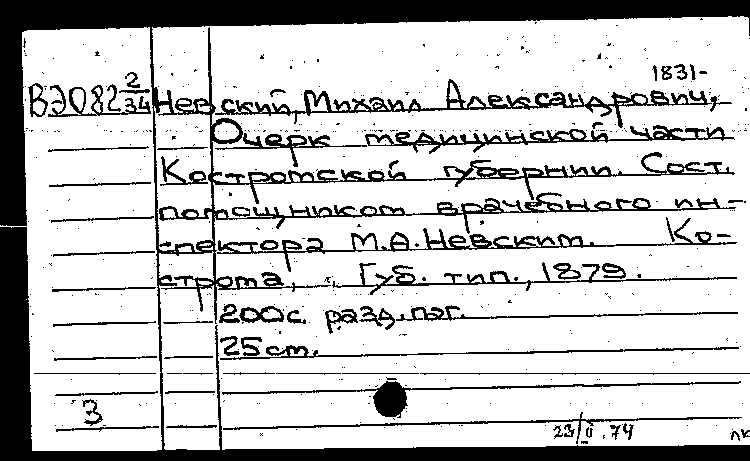 1831-
ВЭ082 2/34 Невский, Михаил Александрович,
Очерк медицинской части
Костромской губернии. Сост.
помощником врачебного ин-
спектора М.А.Невским. Ко-
строма, Губ. тип., 1879.
200с. разд.паг.
25см.
3
23/II.74
лк